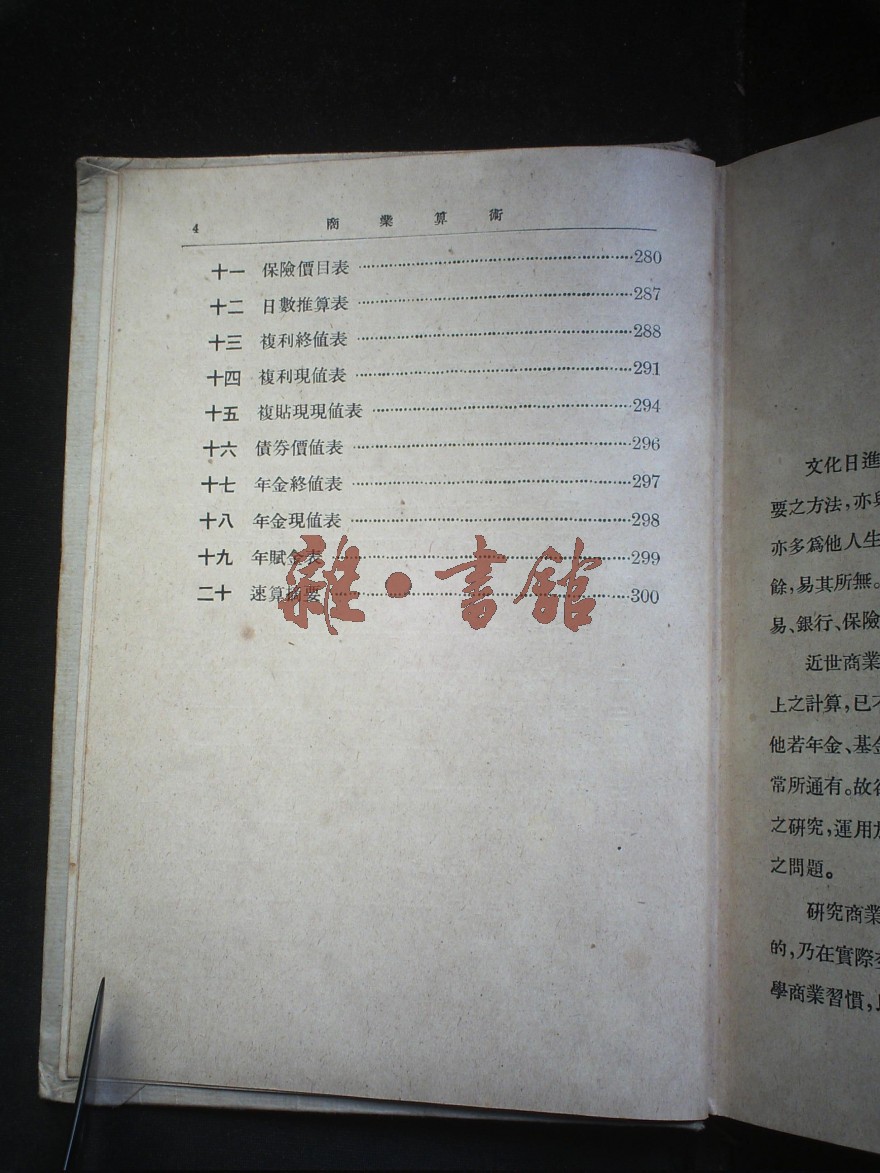 4 商業算術
十一 保險價目表 280
十二 日數推算表 287
十三 複利終値表 288
十四 複利現値表 291
十五 複貼現現値表 294
十六 債券價値表 296
十七 年金終値表 297
十八 年金現値表 298
十九 年賦金表 299
二十 速算摘要 300
雜•書館
文化日進
要之方法，亦與
亦多爲他人生
餘，易其所無。
易、銀行、保險
近世商業
上之計算，已不
他若年金、基金
常所通有。故
之研究，運用
之問題。
研究商業
的，乃在實際
學商業習慣，